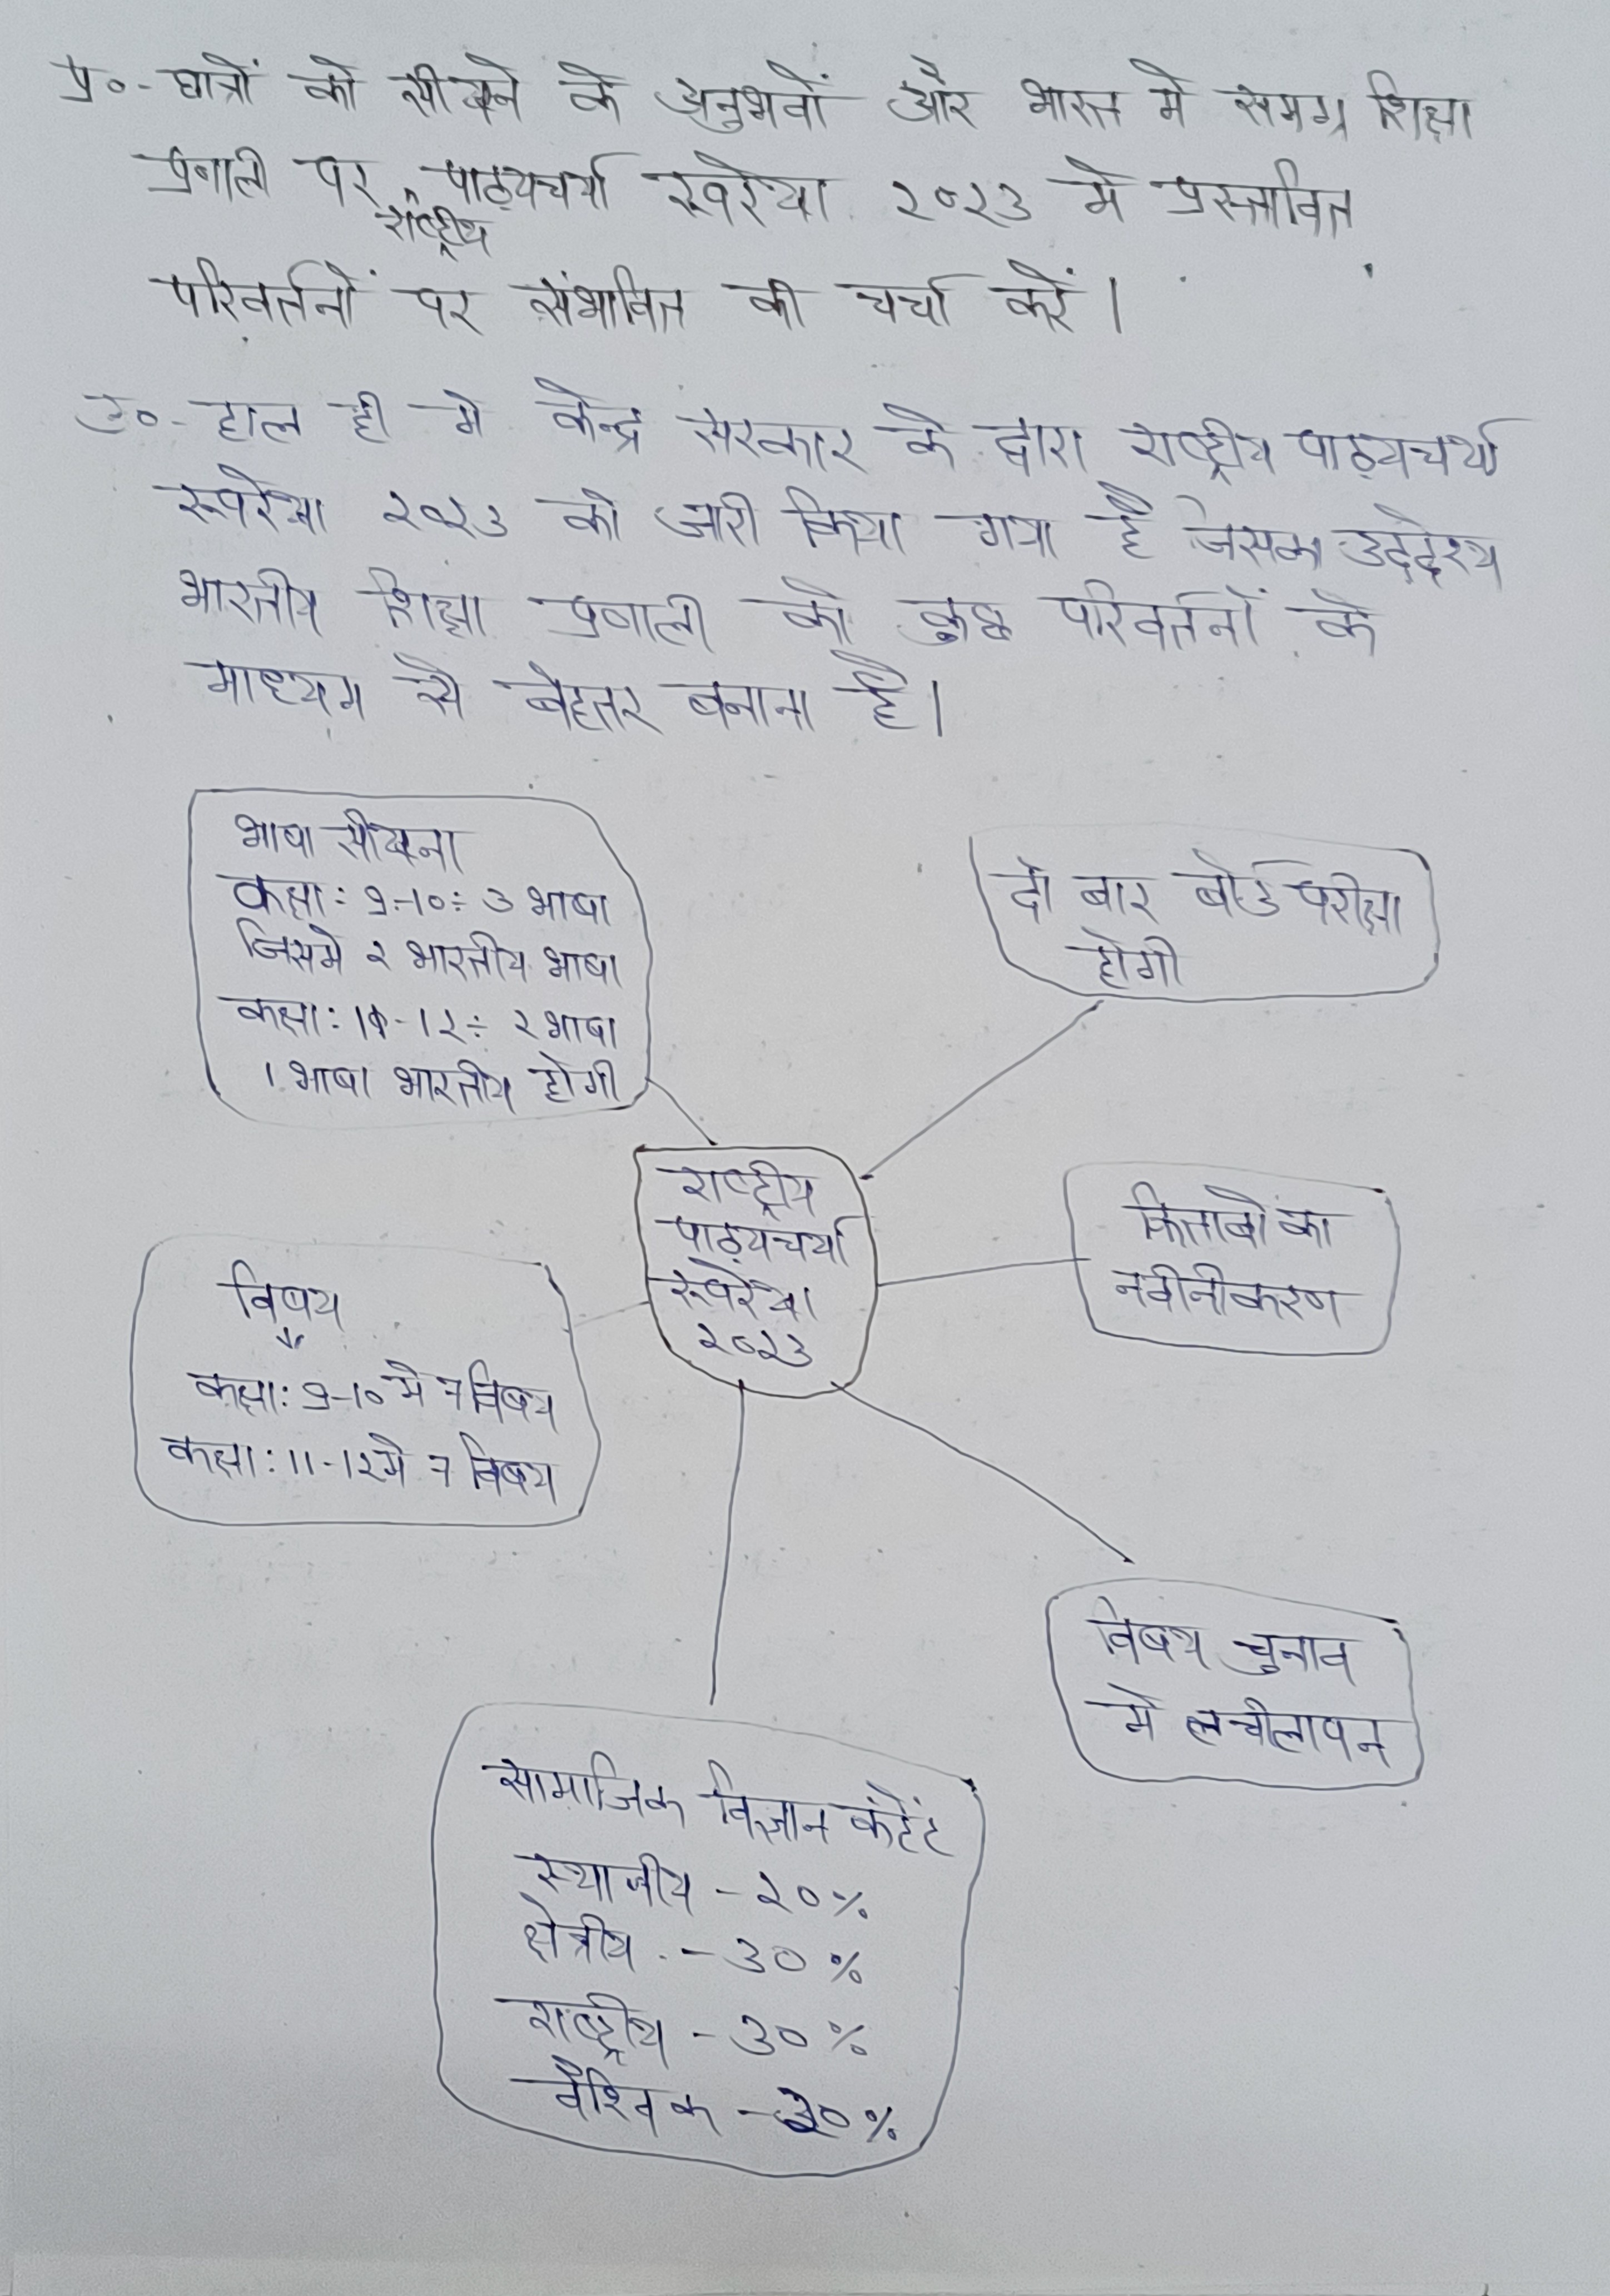 प्र०- छात्रों को सीखने के अनुभवों और भारत मे समग्र शिक्षा
प्रणाली पर राष्ट्रीय पाठ्यचर्या रूपरेखा २०२३ मे प्रस्तावित
परिवर्तनों पर संभावित की चर्चा करें।
उ०- हाल ही मे केन्द्र सरकार के द्वारा राष्ट्रीय पाठ्यचर्या
रूपरेखा २०२३ को जारी किया गया है जिसका उद्देश्य
भारतीय शिक्षा प्रणाली को कुछ परिवर्तनों के
माध्यम से बेहतर बनाना है।
भाषा सीखना
कक्षा: 9-10÷ 3 भाषा
जिसमे २ भारतीय भाषा
कक्षा: 11-12÷ २ भाषा
1 भाषा भारतीय होगी
दो बार बोर्ड परीक्षा
होगी
राष्ट्रीय
पाठ्यचर्या
रूपरेखा
२०२३
किताबों का
नवीनीकरण
विषय
कक्षा: 9-10 मे 7 विषय
कक्षा: 11-12 मे 7 विषय
विषय चुनाव
मे लचीलापन
सामाजिक विज्ञान कंटेंट
स्थानीय - २०%
क्षेत्रीय - 30%
राष्ट्रीय - 30%
वैश्विक - २०%